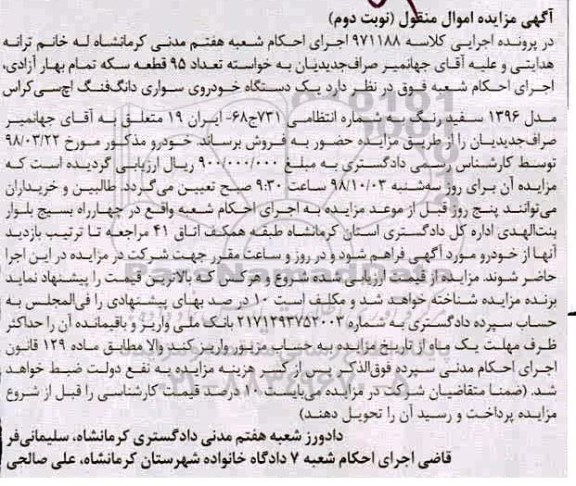 آگهی مزایده اموال منقول (نوبت دوم)
در پرونده اجرایی کلاسه ۹۷۱۱۸۸ اجرای احکام شعبه هفتم مدنی کرمانشاه له خانم ترانه
هدایتی و علیه آقای جهانمیر صراف‌جدیدیان به خواسته تعداد ۹۵ قطعه سکه تمام بهار آزادی،
اجرای احکام شعبه فوق در نظر دارد یک دستگاه خودروی سواری دانگ‌فنگ اچ‌سی‌کراس
مدل ۱۳۹۶ سفید رنگ به شماره انتظامی ۷۳۱ج۶۸- ایران ۱۹ متعلق به آقای جهانمیر
صراف‌جدیدیان را از طریق مزایده حضور به فروش برساند. خودرو مذکور مورخ ۹۸/۰۳/۲۲
توسط کارشناس رسمی دادگستری به مبلغ ۹۰۰/۰۰۰/۰۰۰ ریال ارزیابی گردیده است که
مزایده آن برای روز سه‌شنبه ۹۸/۱۰/۰۳ ساعت ۹:۳۰ صبح تعیین می‌گردد. طالبین و خریداران
می‌توانند پنج روز قبل از موعد مزایده به اجرای احکام شعبه واقع در چهارراه بسیج بلوار
بنت‌الهدی اداره کل دادگستری استان کرمانشاه طبقه همکف اتاق ۴۱ مراجعه تا ترتیب بازدید
آنها از خودرو مورد آگهی فراهم شود و در روز و ساعت مقرر جهت شرکت در مزایده در این اجرا
حاضر شوند. مزایده از قیمت ارزیابی شده شروع و هرکس که بالاترین قیمت را پیشنهاد نماید
برنده مزایده شناخته خواهد شد و مکلف است ۱۰ در صد بهای پیشنهادی را فی‌المجلس به
حساب سپرده دادگستری به شماره ۲۱۷۱۲۹۳۷۵۲۰۰۳ بانک ملی واریز و باقیمانده آن را حداکثر
ظرف مهلت یک ماه از تاریخ مزایده به حساب مزبور واریز کند والا مطابق ماده ۱۲۹ قانون
اجرای احکام مدنی سپرده فوق‌الذکر پس از کسر هزینه مزایده به نفع دولت ضبط خواهد
شد. (ضمنا متقاضیان شرکت در مزایده می‌بایست ۱۰ درصد قیمت کارشناسی را قبل از شروع
مزایده پرداخت و رسید آن را تحویل دهند)
دادورز شعبه هفتم مدنی دادگستری کرمانشاه، سلیمانی‌فر
قاضی اجرای احکام شعبه ۷ دادگاه خانواده شهرستان کرمانشاه، علی صالحی